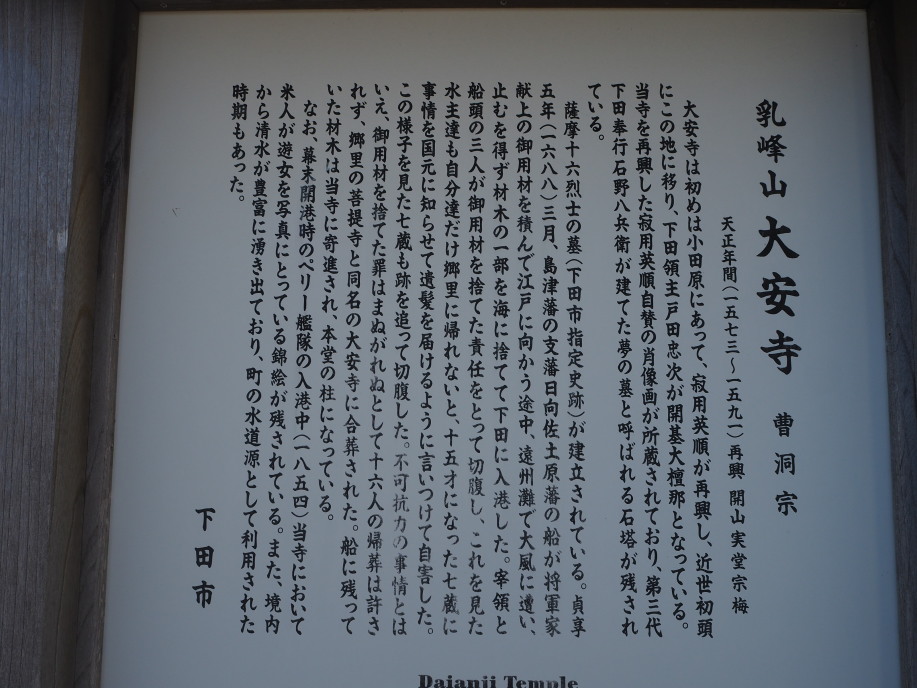 乳峰山 大安寺 曹洞宗
天正年間(一五七三〜一五九一)再興 開山 実堂宗梅
大安寺は初めは小田原にあって、寂用英順が再興し、近世初頭
にこの地に移り、下田領主戸田忠次が開基大檀那となっている。
当寺を再興した寂用英順自賛の肖像画が所蔵されており、第三代
下田奉行石野八兵衛が建てた夢の墓と呼ばれる石塔が残され
ている。
薩摩十六烈士の墓(下田市指定史跡)が建立されている。貞享
五年(一六八八)三月、島津藩の支藩日向佐土原藩の船が将軍家
献上の御用材を積んで江戸に向かう途中、遠州灘で大風に遭い、
止むを得ず材木の一部を海に捨てて下田に入港した。宰領と
船頭の三人が御用材を捨てた責任をとって切腹し、これを見た
水主達も自分達だけ郷里に帰れないと、十五才になった七蔵に
事情を国元に知らせて遺髪を届けるように言いつけて自害した。
この様子を見た七蔵も跡を追って切腹した。不可抗力の事情とは
いえ、御用材を捨てた罪はまぬがれぬとして十六人の帰葬は許さ
れず、郷里の菩提寺と同名の大安寺に合葬された。船に残って
いた材木は当寺に寄進され、本堂の柱になっている。
なお、幕末開港時のペリー艦隊の入港中(一八五四)当寺において
米人が遊女を写真にとっている錦絵が残されている。また、境内
から清水が豊富に湧き出ており、町の水道源として利用された
時期もあった。
下田市
Daianji Temple